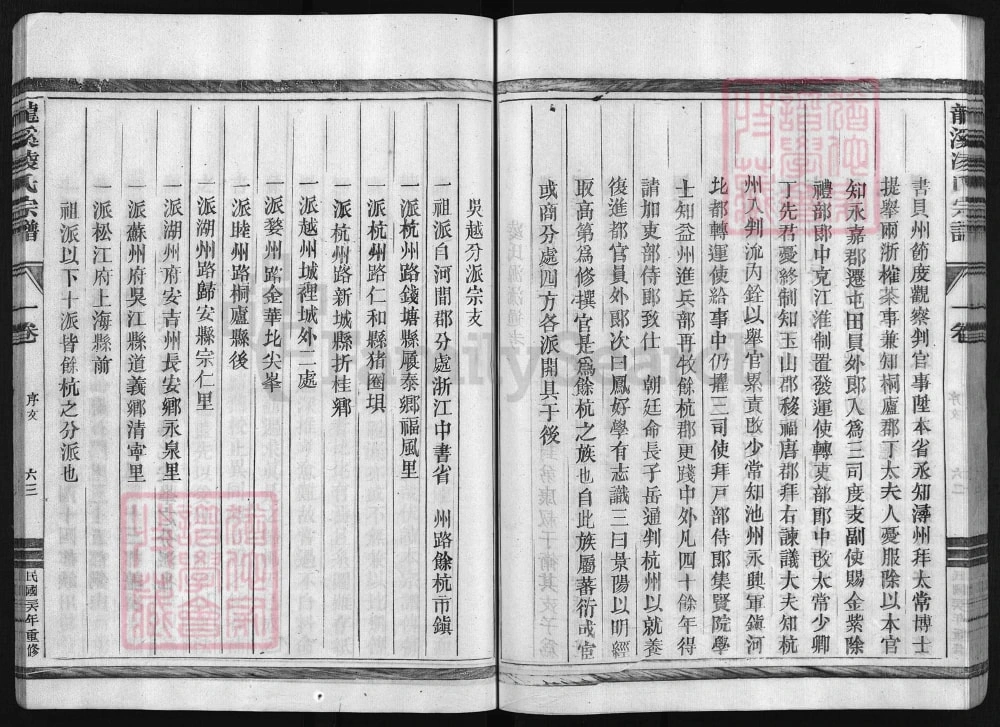 書貝州節度觀察判官事陞本省丞知潯州拜太常博士
提舉兩浙榷茶事兼知桐廬郡丁太夫人憂服除以本官
知永嘉郡遷屯田員外郎入為三司度支副使賜金紫除
禮部郎中克江淮制置發運使轉吏部郎中改太常少卿
丁先君憂終制知玉山郡移福唐郡拜右諫議大夫知杭
州入判流丙銓以舉官累責改少常知池州永興軍鎮河
北都轉運使給事中仍擢三司使拜戸部侍郎集賢院學
士知益州進兵部再牧餘杭郡更踐中外凡四十餘年得
請加吏部侍郎致仕 朝廷命長子岳通判杭州以就養
復進都官員外郎次曰鳳好學有志識三曰景陽以明經
取高第為修撰官是為餘杭之族也自此族屬蕃衍或宦
或商分處四方各派開具于後
龍溪凌氏宗譜
一卷
吳越分派宗支
一祖派白河間郡分處浙江中書省 州路餘杭市鎮
一派杭州路錢塘縣履泰鄉福風里
一派杭州路仁和縣猪圈埧
一派杭州路新城縣折桂鄉
一派越州城裡城外二處
一派婺州路金華北尖峯
一派睦州路桐廬縣後
一派湖州路歸安縣宗仁里
一派湖州府安吉州長安鄉永泉里
一派蘇州府吳江縣道義鄉清寧里
一派松江府上海縣前
祖派以下十派皆餘杭之分派也
龍溪凌氏宗譜
一卷
序文
六三
民國三六年重修
FamilySearch